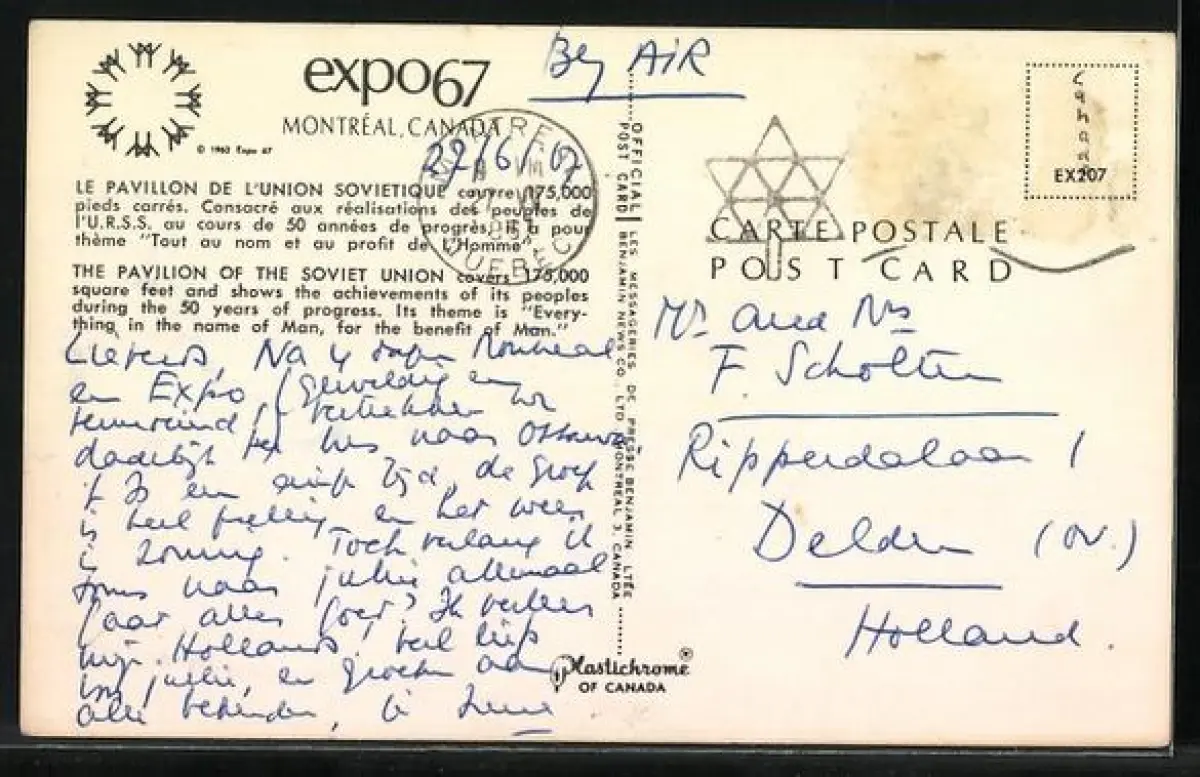 By AIR
expo67
MONTRÉAL, CANADA
© 1963 Expo 67
22/6/67
LE PAVILLON DE L'UNION SOVIETIQUE couvre 175,000
pieds carrés. Consacré aux réalisations des peuples de
l'U.R.S.S. au cours de 50 années de progrès, il a pour
thème "Tout au nom et au profit de L'Homme"
THE PAVILION OF THE SOVIET UNION covers 175,000
square feet and shows the achievements of its peoples
during the 50 years of progress. Its theme is "Every-
thing in the name of Man, for the benefit of Man."
Lieverds, Na 4 dagen Montreal
en Expo, (Geweldig en
vermoeiend) vertrekken we
dadelijk per bus naar Ottawa
is een fijne tijd, de groep
is heel prettig en het weer
is zonnig. Toch verlang ik
soms naar jullie allemaal
gaat alles goed? Ik
mijn Hollands! veel liefs
voor jullie, en groeten aan
alle bekenden,
OFFICIAL POST CARD
LES MESSAGERIES DE PRESSE BENJAMIN LTÉE
BENJAMIN NEWS CO. LTD. MONTREAL 3, CANADA
Plastichrome®
OF CANADA
Canada
EX207
CARTE POSTALE
POST CARD
Mr and Mrs
F. Scholten
Ripperdalaan 1
Delden (OV.)
Holland.